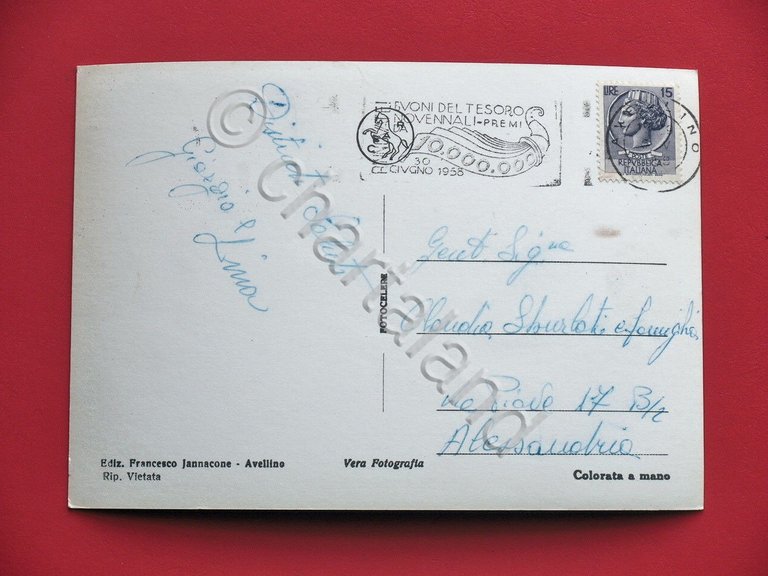 BVONI DEL TESORO
NOVENNALI - PREMI
10.000.000
30
GIVGNO 1958
LIRE 15
REPVBBLICA
ITALIANA
INO
Distinti Saluti
Giorgio e
Lina
Gent Signa
Claudia Sburlati e famiglia
via Piave 17 B/2
Alessandria
FOTOCELERE
Ediz. Francesco Jannacone - Avellino
Rip. Vietata
Vera Fotografia
Colorata a mano
© chartaland